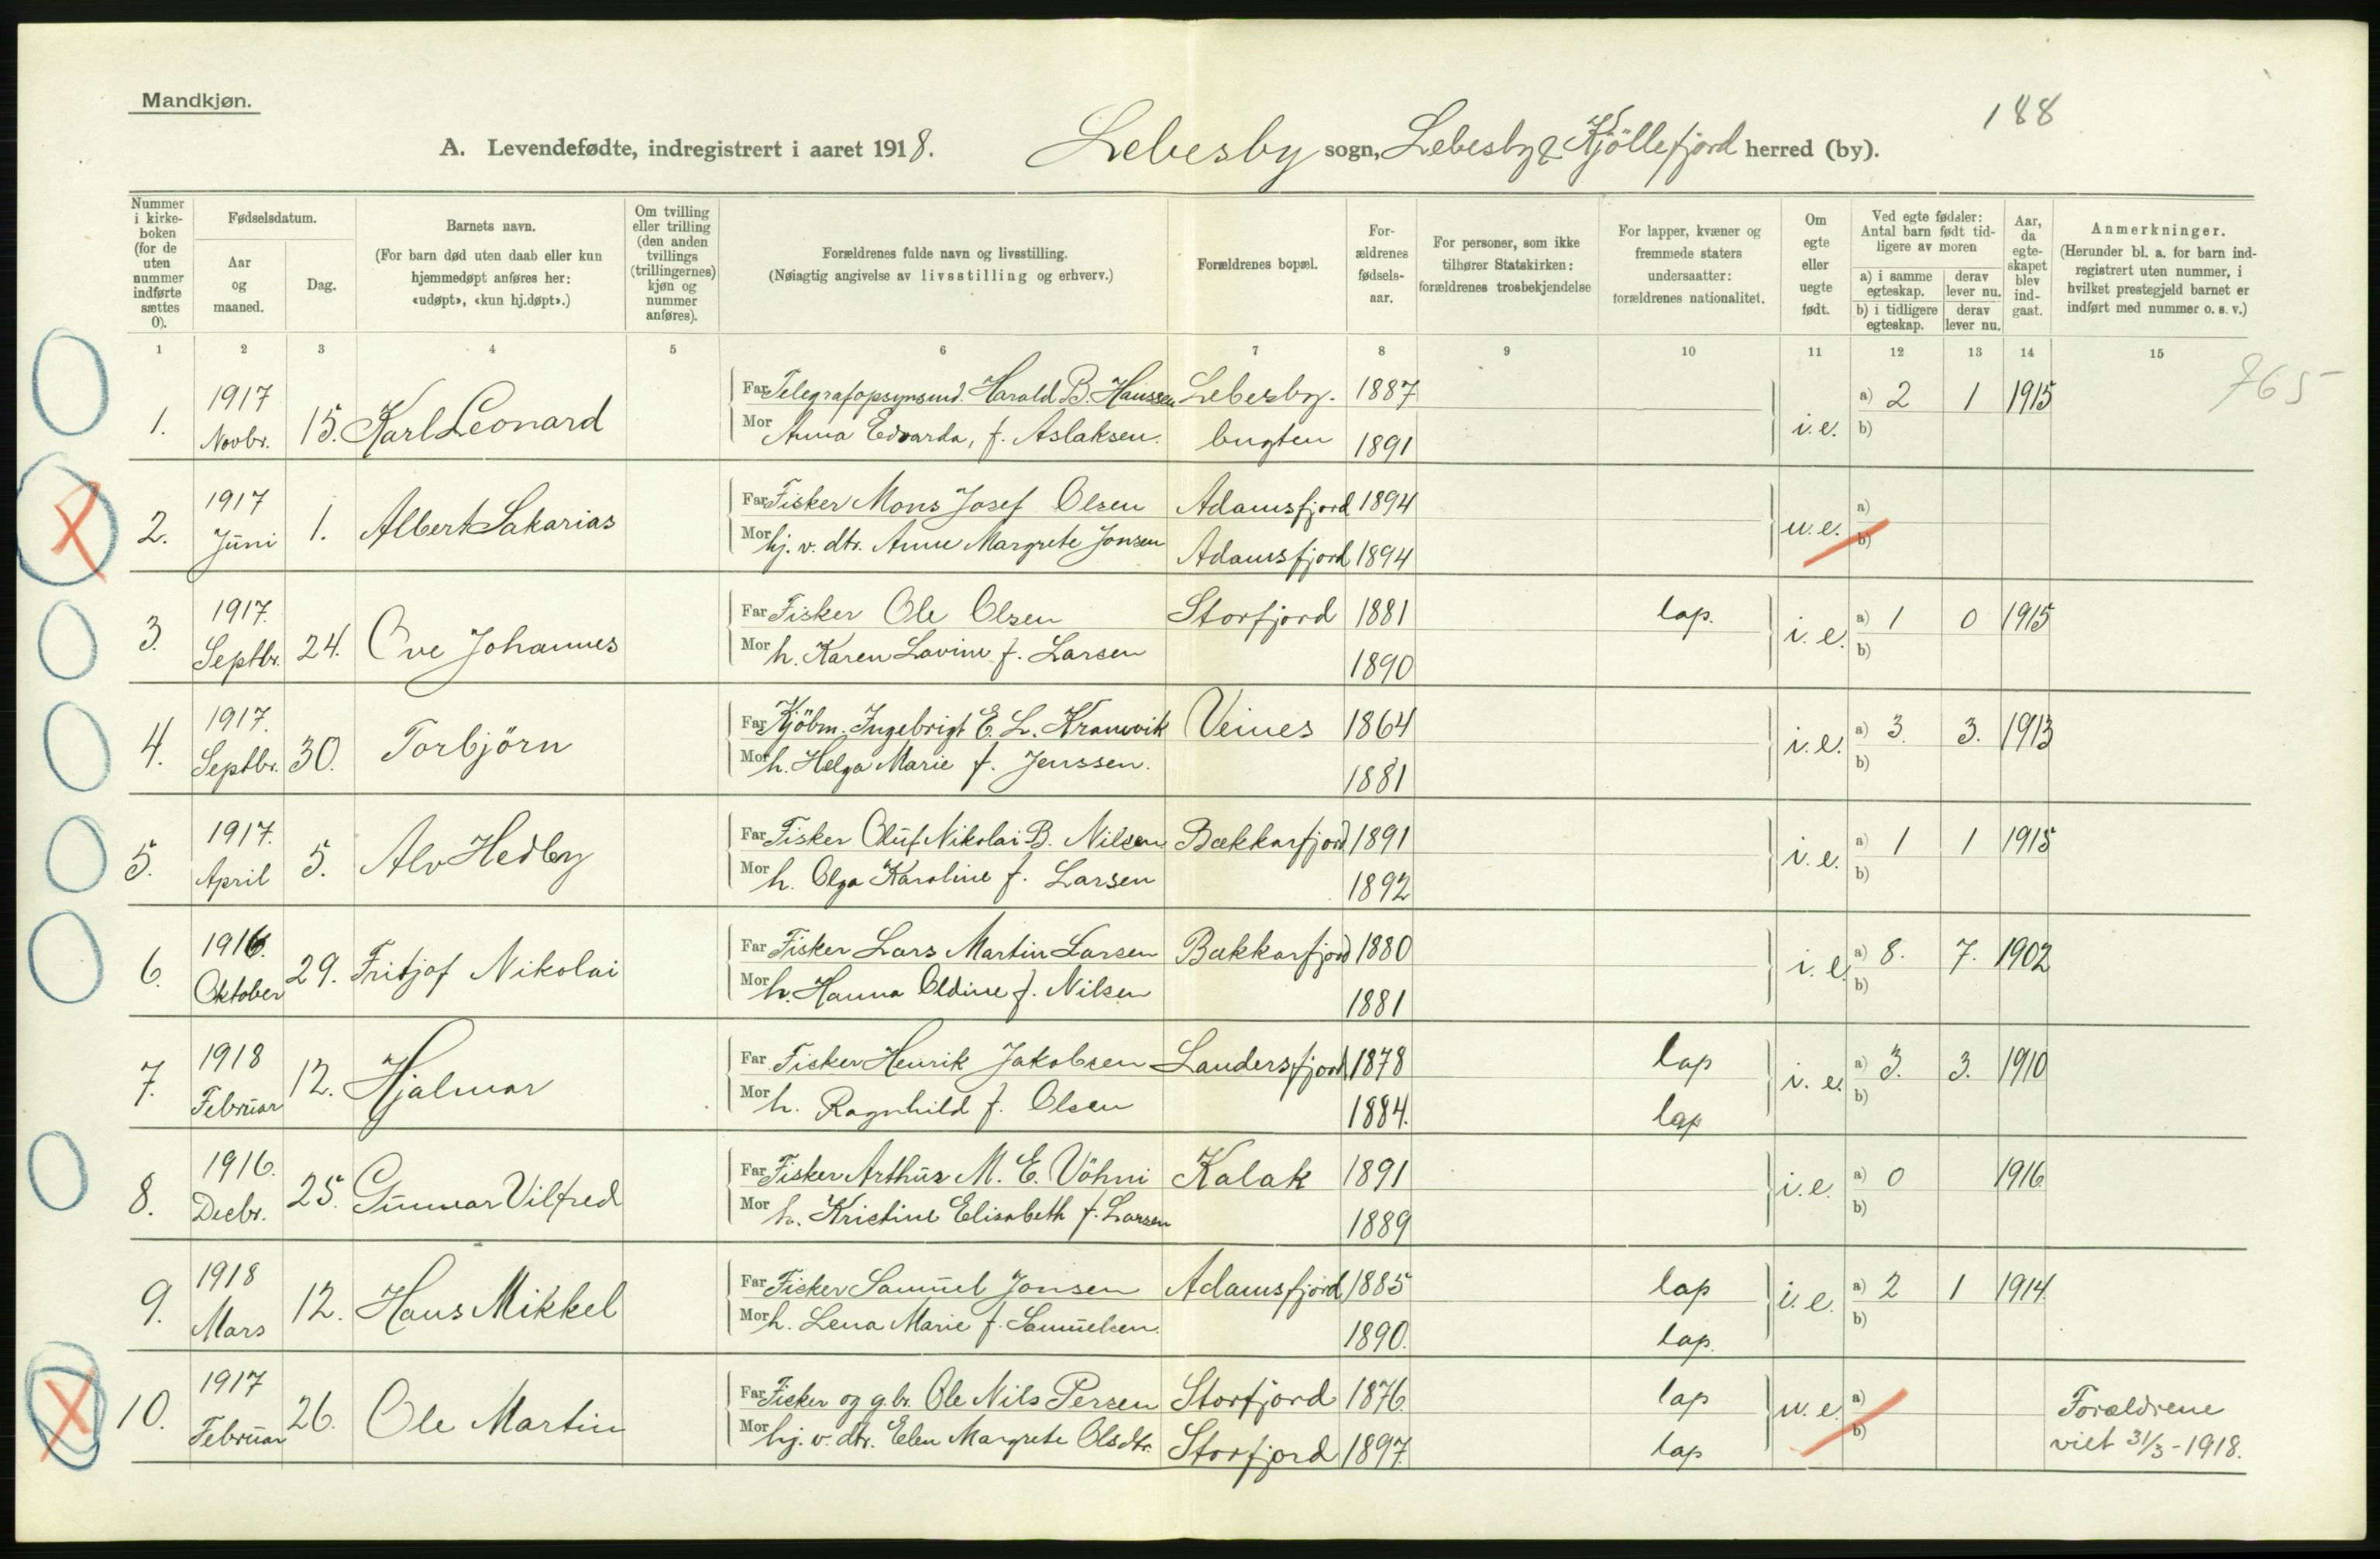 Mandkjøn.
188
A. Levendefødte, indregistrert i aaret 1918. Lebesby sogn, Lebesby & Kjöllefjord herred (by).
Nummer i kirkeboken (for de uten nummer indførte sættes 0).
Fødselsdatum.
Aar og maaned.
Dag.
Barnets navn.
(For barn død uten daab eller kun hjemmedøpt anføres her: «udøpt», «kun hj.døpt».)
Om tvilling eller trilling (den anden tvillings (trillingernes) kjøn og nummer anføres).
Forældrenes fulde navn og livsstilling.
(Nøiagtig angivelse av livsstilling og erhverv.)
Forældrenes bopæl.
Forældrenes fødselsaar.
For personer, som ikke tilhører Statskirken: forældrenes trosbekjendelse
For lapper, kvæner og fremmede staters undersaatter: forældrenes nationalitet.
Om egte eller uegte født.
Ved egte fødsler: Antal barn født tidligere av moren
a) i samme egteskap. derav lever nu.
b) i tidligere egteskap. derav lever nu.
Aar, da egteskapet blev indgaat.
Anmerkninger.
(Herunder bl. a. for barn indregistrert uten nummer, i hvilket prestegjeld barnet er indført med nummer o. s. v.)
1 2 3 4 5 6 7 8 9 10 11 12 13 14 15
765
1. 1917 Novbr. 15. Karl Leonard Far Telegrafopsynsmd. Harald B. Hanssen Lebesby. 1887 i.e. a) 2 1 1915
Mor Anna Edvarda, f. Aslaksen. bugten 1891 b)
2. 1917 Juni 1. Albert Sakarias Far Fisker Mons Josef Olsen Adamsfjord 1894 u.e. a)
Mor hj. v. dtr. Anne Margrete Jonsen Adamsfjord 1894 b)
3. 1917. Septbr. 24. Ove Johannes Far Fisker Ole Olsen Storfjord 1881 lap. i. e. a) 1 0 1915
Mor h. Karen Lovine f. Larsen 1890 b)
4. 1917. Septbr. 30. Torbjörn Far Kjöbm. Ingebrigt E. L. Kramvik Veines 1864 i.e. a) 3. 3. 1913
Mor h. Helga Marie f. Jenssen. 1881 b)
5. 1917. April 5. Alv Hedley Far Fisker Oluf Nikolai B. Nilsen Bækkarfjord 1891 i. e. a) 1 1 1915
Mor h. Olga Karoline f. Larsen 1892 b)
6. 1916. Oktober 29. Fritjof Nikolai Far Fisker Lars Martin Larsen Bækkarfjord 1880 i. e. a) 8. 7. 1902
Mor h. Hanna Oldine f. Nilsen 1881 b)
7. 1918 Februar 12. Hjalmar Far Fisker Henrik Jakobsen Landersfjord 1878 lap i. e. a) 3. 3. 1910
Mor h. Ragnhild f. Olsen 1884. lap b)
8. 1916. Decbr. 25. Gunnar Vilfred Far Fisker Arthur M. E. Vöhni Kalak 1891 i.e. a) 0 1916
Mor h. Kristine Elisabeth f. Larsen 1889 b)
9. 1918 Mars 12. Hans Mikkel Far Fisker Samuel Jonsen Adamsfjord 1885 lap i. e. a) 2 1 1914
Mor h. Lena Marie f. Samuelsen. 1890. lap. b)
10. 1917 Februar 26. Ole Martin Far Fisker og g.br. Ole Nils Persen Storfjord 1876. lap u. e. a) Forældrene
Mor hj. v. dtr. Elen Margrete Olsdtr. Storfjord 1897. lap b) viet 31/3-1918.